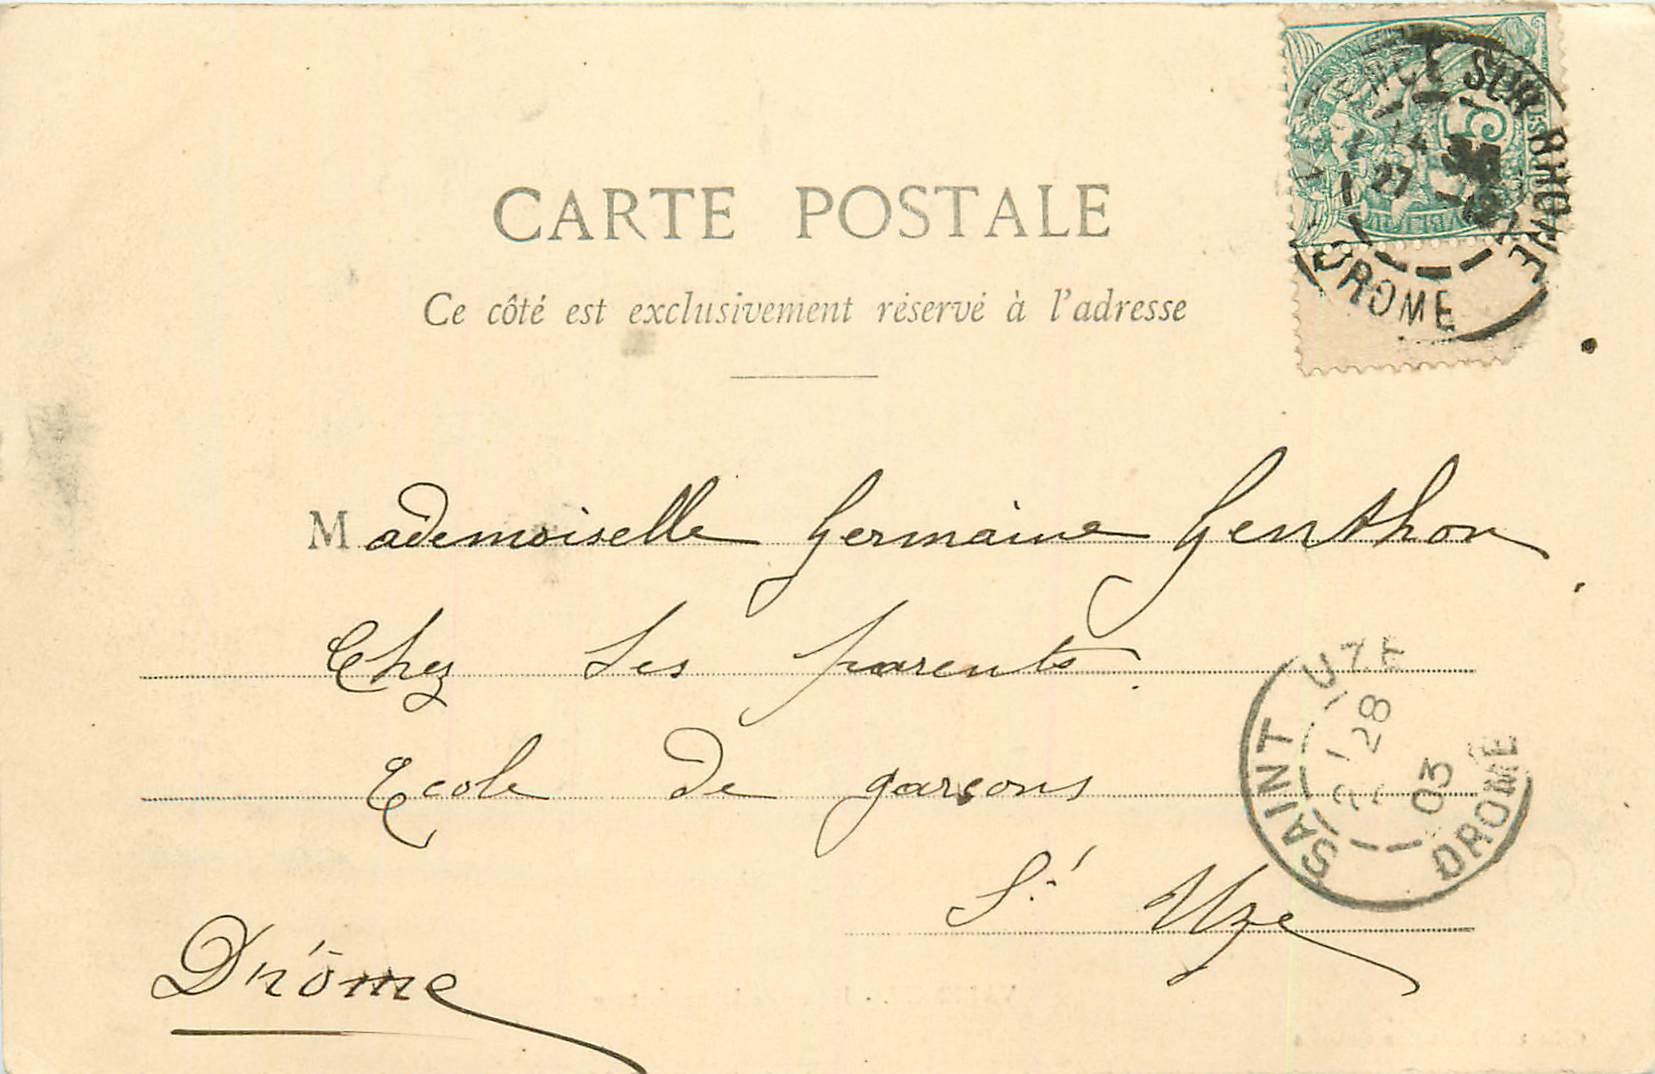 CARTE POSTALE
Ce côté est exclusivement réservé à l'adresse
SUR RHONE
DROME
27
5
Mademoiselle Germaine Genthon
Chez ses parents.
Ecole de garçons
St Uze
Drôme
SAINT UZE
28
03
DROME